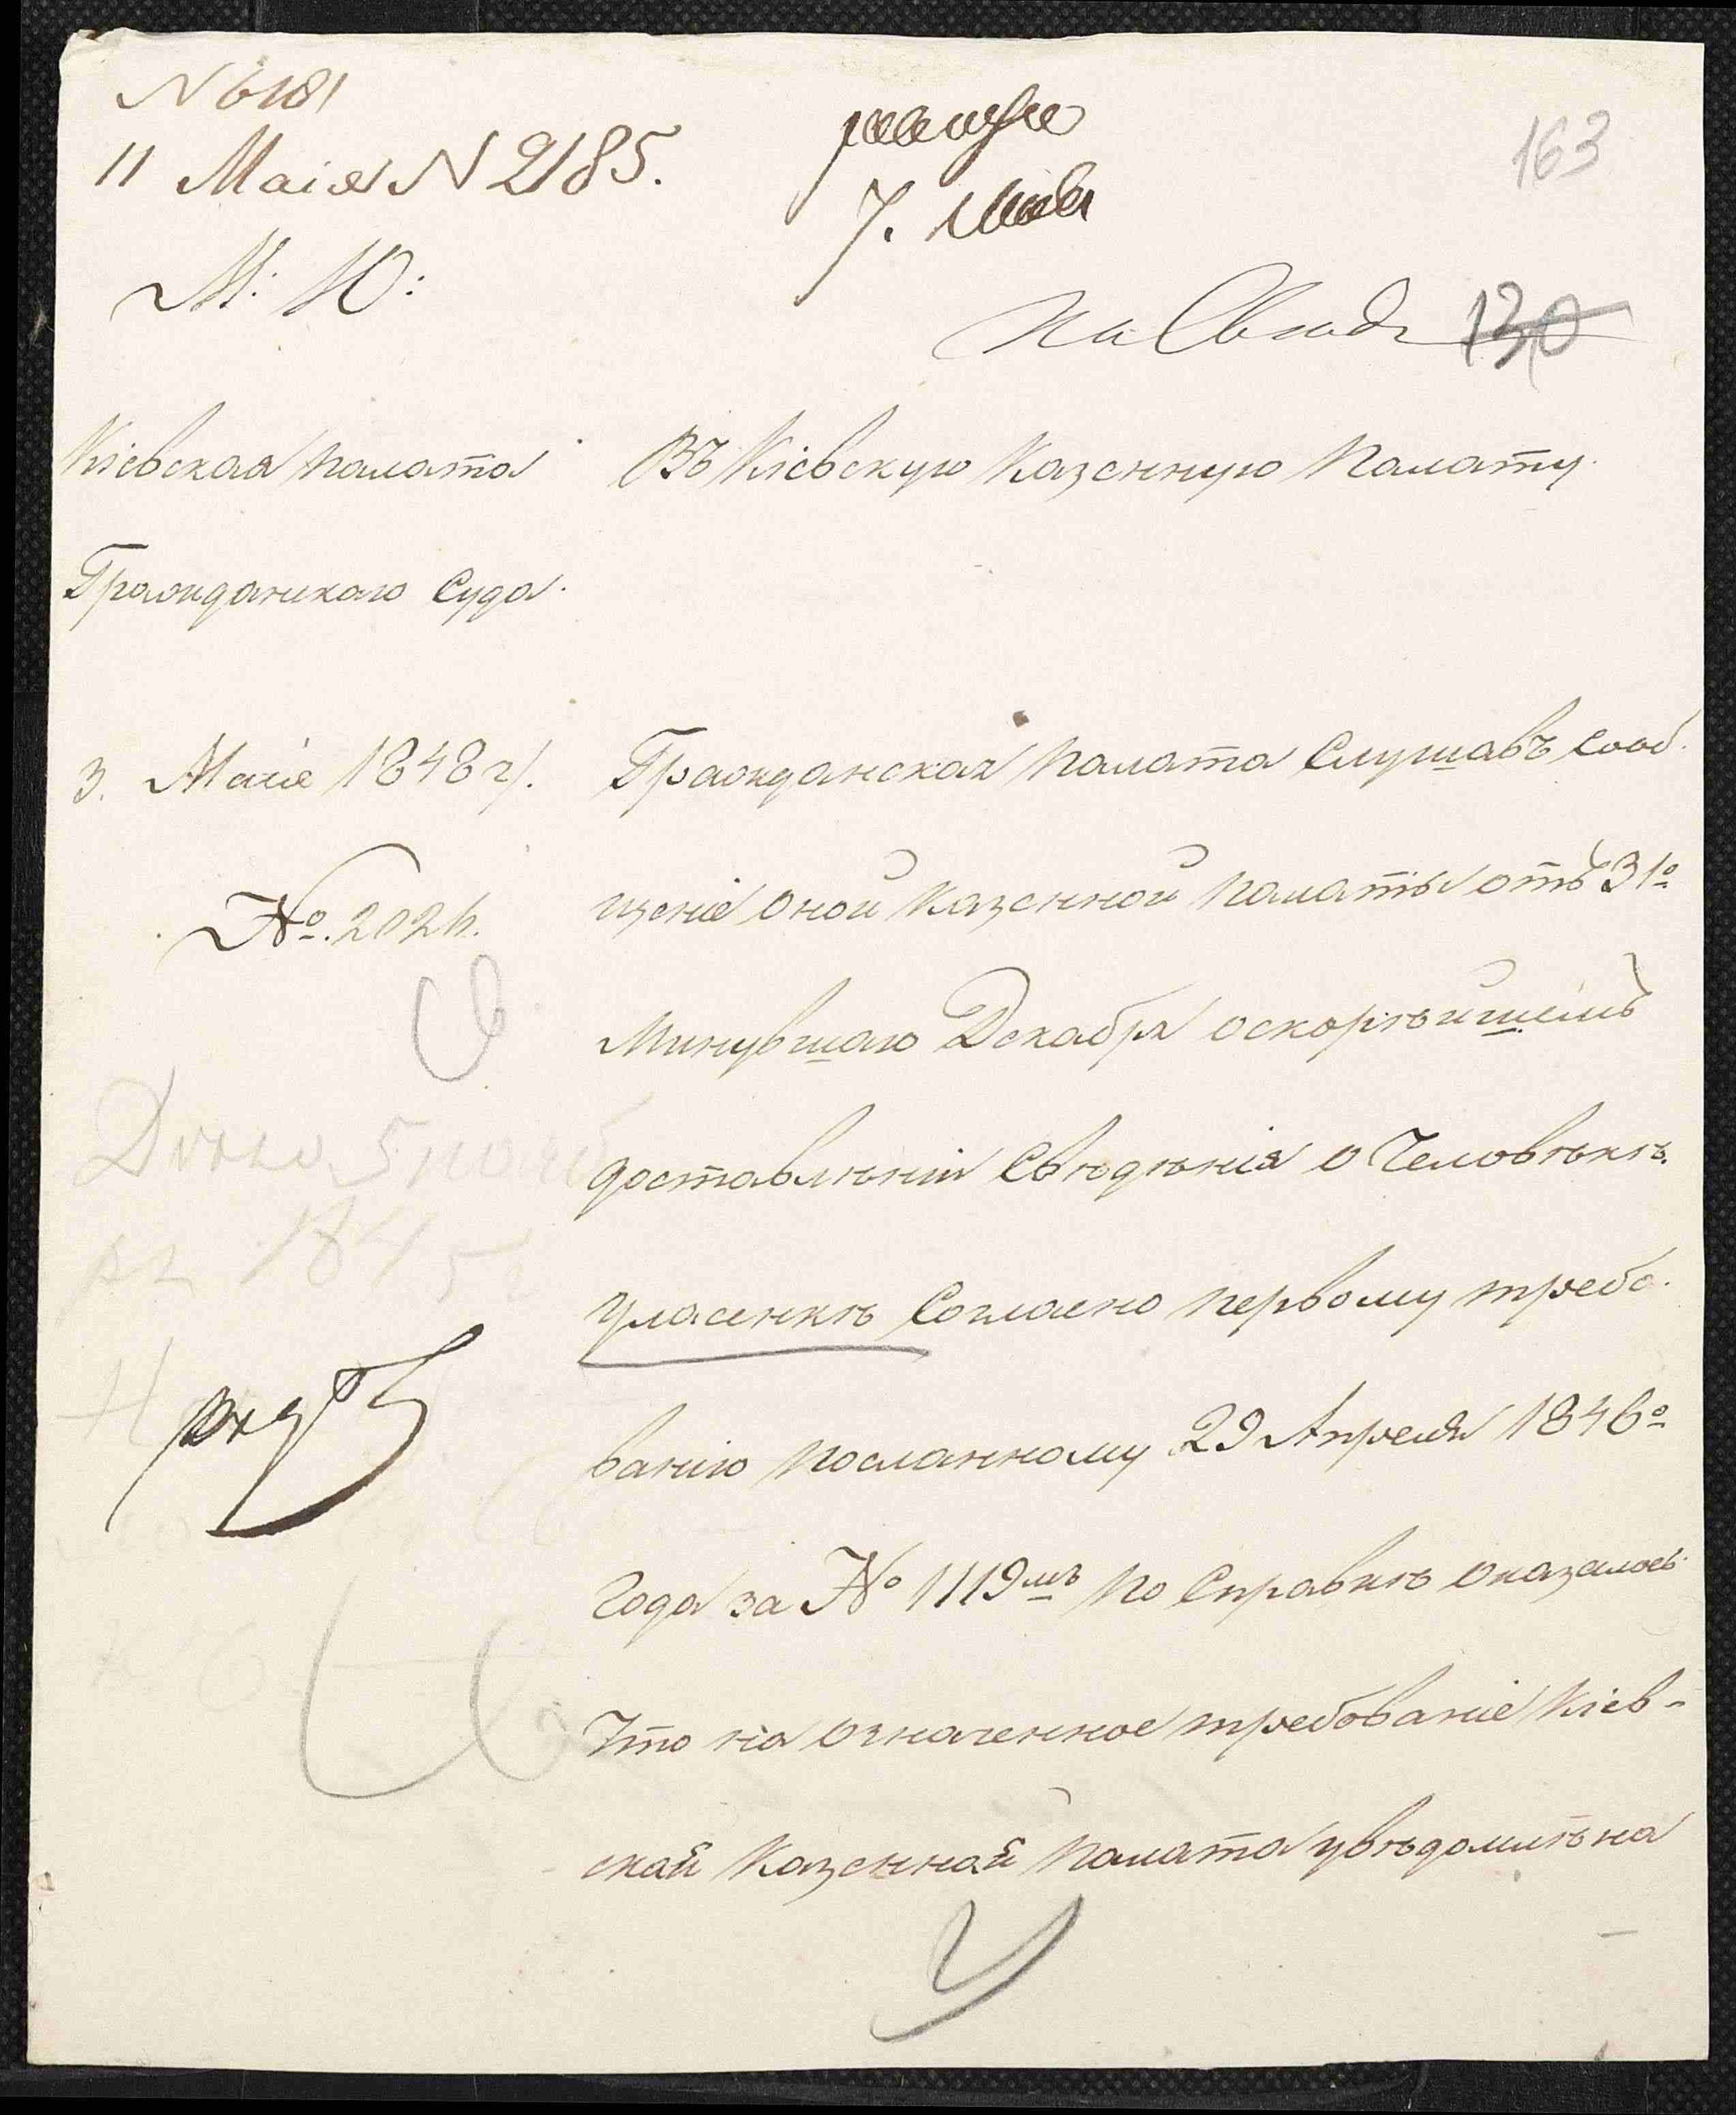 N 6181
11 Маія N 2185.
163
М: Ю:
130
Кіевская Палата
Гражданскаго Суда.
3. Маія 1848 г.
№. 2024.
Въ Кіевскую Казенную Палату.
Гражданская Палата Слушавъ сооб.
щеніе оной Казенной Палаты отъ 31º
Минувшаго Декабря о скорѣйшемъ
доставлѣніи Свѣдѣнія о Человѣкѣ
Уласенкѣ Согласно первому требо.
ванію посланному 29 Апреля 1846º
Года за № 1119мъ по Справкѣ оказалось
Что на означенное требованіе Кіев-
ской Казенной Палата увѣдомлѣна